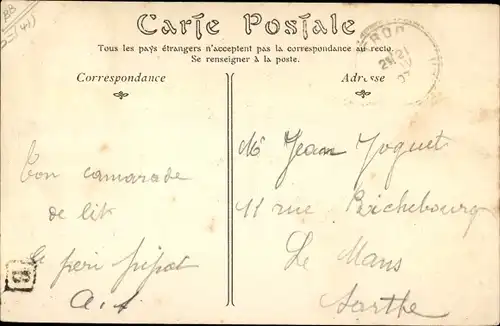 Carte Postale
Tous les pays étrangers n'acceptent pas la correspondance au recto.
Se renseigner à la poste.
Correspondance
Adresse
Ton camarade
de lit
le peri
a. s
Mr Jean Joguet
11 rue Richebourg
Le Mans
Sarthe